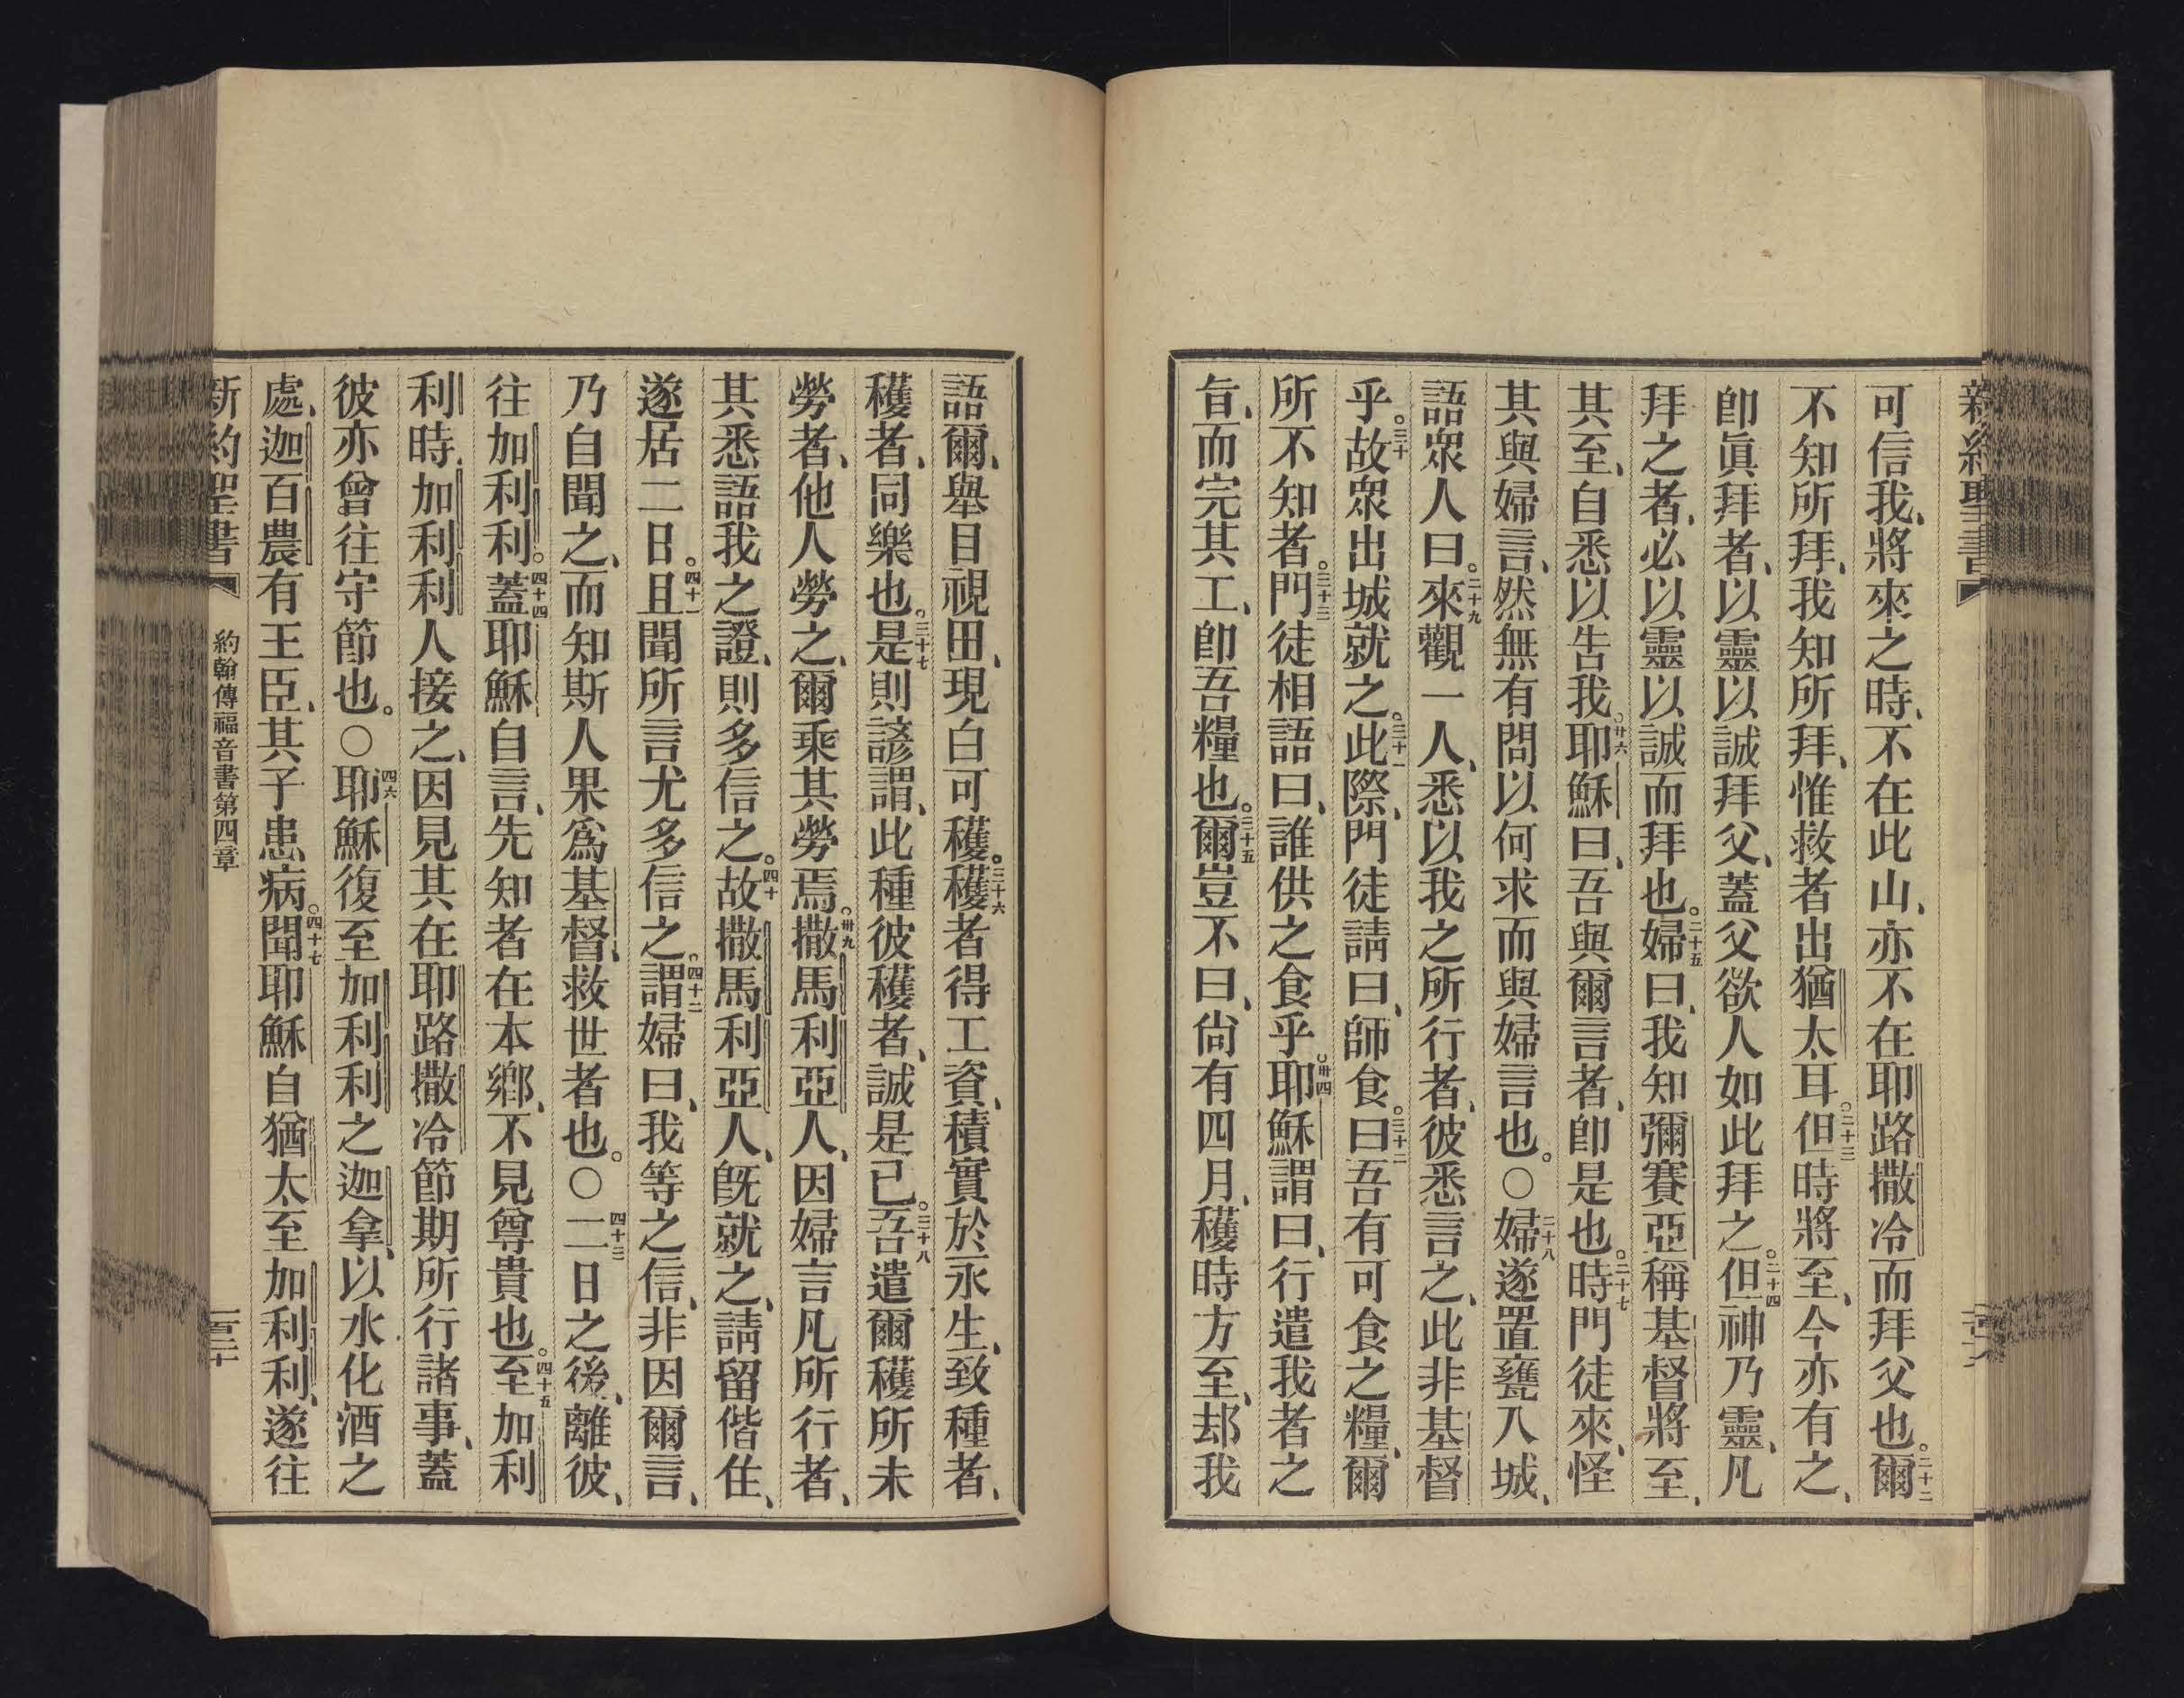 新約聖書
可信我、將來之時、不在此山、亦不在耶路撒冷而拜父也。二十二爾
不知所拜、我知所拜、惟救者出猶太耳。二十三但時將至、今亦有之、
卽眞拜者、以靈以誠拜父、蓋父欲人如此拜之。二十四但神乃靈、凡
拜之者、必以靈以誠而拜也。二十五婦曰、我知彌賽亞稱基督將至、
其至、自悉以告我。廿六耶穌曰、吾與爾言者、卽是也。二十七時門徒來、怪
其與婦言、然無有問以何求而與婦言也。〇二十八婦遂置甕入城、
語眾人曰。二十九來觀一人、悉以我之所行者、彼悉言之、此非基督
乎。三十故眾出城就之。三十一此際、門徒請曰、師食。三十二曰吾有可食之糧、爾
所不知者。三十三門徒相語曰、誰供之食乎。卅四耶穌謂曰、行遣我者之
旨、而完其工、卽吾糧也。三十五爾豈不曰、尙有四月、穫時方至、却我
語爾、舉目視田、現白可穫。三十六穫者得工資、積實於永生、致種者、
穫者、同樂也。三十七是則諺謂、此種彼穫者、誠是已。三十八吾遣爾穫所未
勞者、他人勞之、爾乘其勞焉。卅九撒馬利亞人、因婦言凡所行者、
其悉語我之證、則多信之。四十故撒馬利亞人、旣就之、請留偕住、
遂居二日。四十一且聞所言尤多信之。四十二謂婦曰、我等之信、非因爾言、
乃自聞之、而知斯人果爲基督、救世者也。〇四十三二日之後、離彼、
往加利利。四十四蓋耶穌自言、先知者在本鄉、不見尊貴也。四十五至加利
利時、加利利人接之、因見其在耶路撒冷節期所行諸事、蓋
彼亦曾往守節也。〇四六耶穌復至加利利之迦拿、以水化酒之
處、迦百農有王臣、其子患病。四十七聞耶穌自猶太至加利利、遂往
新約聖書 約翰傳福音書第四章 一百二十